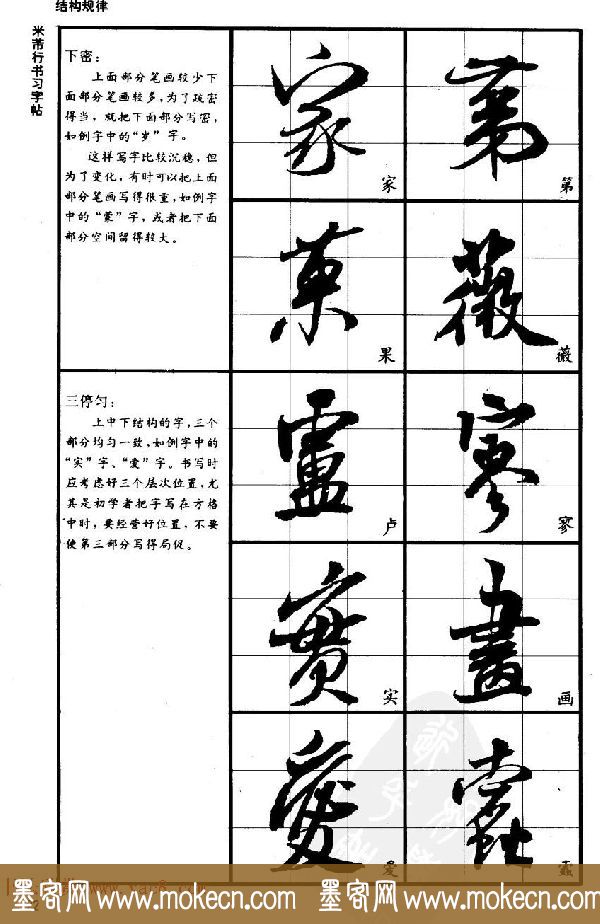 结构规律
米芾行书习字帖
下密：
上面部分笔画较少下
面部分笔画较多，为了疏密
得当，就把下面部分写密，
如例字中的“岁”字。
这样写字比较沉稳，但
为了变化，有时可以把上面
部分笔画写得很重，如例字
中的“蒙”字，或者把下面
部分空间留得较大。
家
第
果
薇
三停匀：
上中下结构的字，三个
部分均匀一致，如例字中的
“实”字、“爱”字。书写时
应考虑好三个层次位置，尤
其是初学者把字写在方格
中时，要经营好位置，不要
使第三部分写得局促。
卢
寥
实
画
爱
墨客网 www.mokecn.com 墨客网 www.mokecn.com